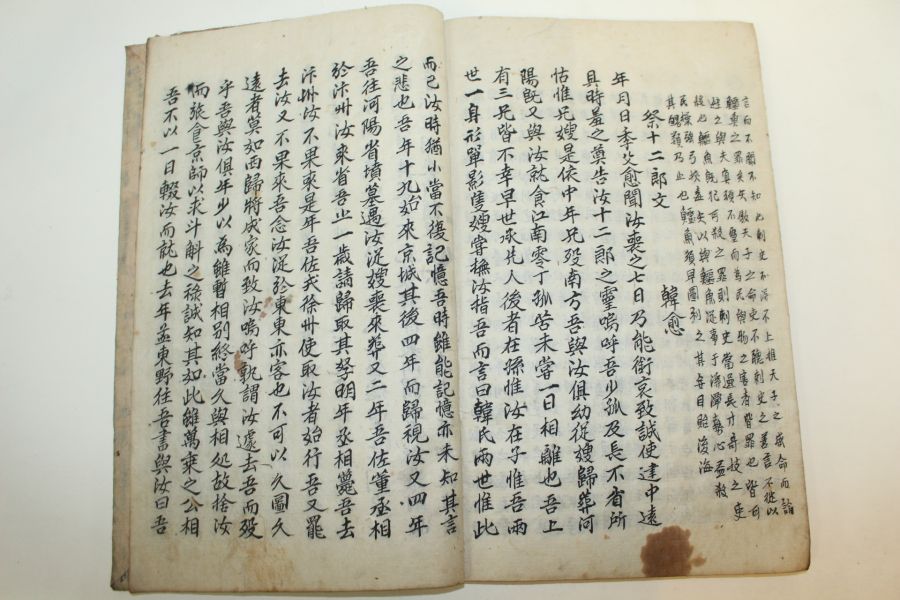 言而不聞不知也刺史不得不上推天子之威命而諭
鱷魚之罪矣夫傲天子之命吏不聽刺史之善言不徙以
避之與夫冥頑不靈而為民與物之害者皆罪也皆可
殺也鱷魚既犯可殺之罪則刺史當選長才奇技之吏
民操強弓挾毒矢以與鱷魚從事于海澤心盡殺
其類乃止也鱷魚須早圖利之其毋自貽後悔
祭十二郎文
韓愈
年月日季父愈聞汝喪之七日乃能銜哀致誠使建中遠
具時羞之奠告汝十二郎之靈嗚呼吾少孤及長不省所
怙惟兄嫂是依中年兄歿南方吾與汝俱幼從嫂歸葬河
陽既又與汝就食江南零丁孤苦未嘗一日相離也吾上
有三兄皆不幸早世承先人後者在孫惟汝在子惟吾兩
世一身形單影隻嫂嘗撫汝指吾而言曰韓氏兩世惟此
而已汝時猶小當不復記憶吾時雖能記憶亦未知其言
之悲也吾年十九始來京城其後四年而歸視汝又四年
吾往河陽省墳墓遇汝從嫂喪來葬又二年吾佐董丞相
於汴州汝來省吾止一歲請歸取其孥明年丞相薨吾去
汴州汝不果來是年吾佐戎徐州使取汝者始行吾又罷
去汝又不果來吾念汝從於東東亦客也不可以久圖久
遠者莫如西歸將成家而致汝嗚呼孰謂汝遽去吾而歿
乎吾與汝俱年少以為雖暫相別終當久與相處故捨汝
而旅食京師以求斗斛之祿誠知其如此雖萬乘之公相
吾不以一日輟汝而就也去年孟東野往吾書與汝曰吾